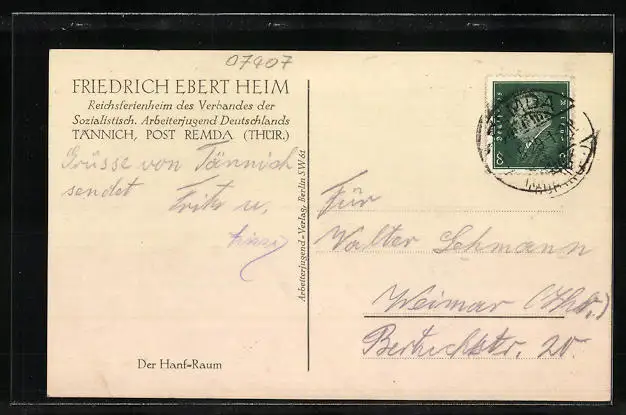 07407
FRIEDRICH EBERT HEIM
Reichsferienheim des Verbandes der
Sozialistisch. Arbeiterjugend Deutschlands
TÄNNICH, POST REMDA (THÜR.)
Grüsse von Tännich
sendet Fritz u.
Der Hanf-Raum
Arbeiterjugend-Verlag, Berlin SW 61
8
REMDA
Für
Walter Lehmann
Weimar (Thür.)
20